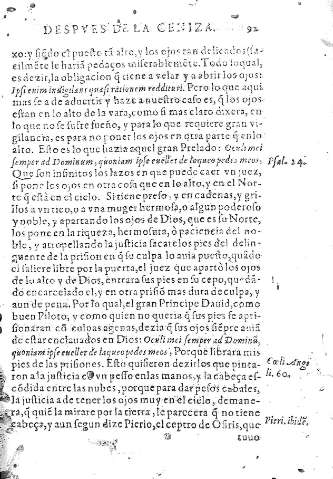 DESPVES DE LA CENIZA. 92
xo: y siẽdo el puesto tã alto, y los ojos tan delicados (fa
cilmẽte le hariã pedaços miserablemẽte. Todo lo qual,
es dezir, la obligacion q̃ tiene a velar y a abrir los ojos:
Ipsi enim indigilant quasi rationem reddituri. Pero lo que aqui
mas se a de aduertir y haze a nuestro caso es, q̃ los ojos
estan en lo alto de la vara, como si mas claro dixera, en
lo que no se sufre sueño, y para lo que requiere gran vi
gilancia, es para no poner los ojos en otra parte q̃ en lo
alto. Esto es lo que hazia aquel gran Prelado: Oculi mei
semper ad Dominum, quoniam ipse euellet de laqueo pedes meos.
Psal. 24.
Que son infinitos los lazos en que puede caer vn juez,
si pone los ojos en otra cosa que en lo alto, y en el Nor-
te q̃ está en el cielo. Si tiene preso, y en cadenas, y gri-
llos a vn rico, o a vna muger hermosa, o algun poderoso
y noble, y apartando los ojos de Dios, que es su Norte,
los pone en la riqueza, hermosura, ò paciencia del no-
ble, y atropellando la justicia saca los pies del delin-
quente de la prision en q̃ su culpa lo auia puesto, quãdo
el saliere libre por la puerta, el juez que apartò los ojos
de lo alto y de Dios, entrara sus pies en su cepo, quedã-
do encarcelado el, y en otra prisiõ mas dura de culpa, y
aun de pena. Por lo qual, el gran Principe Dauid, como
buen Piloto, y como quien no queria q̃ sus pies se apri-
sionaran cõ culpas agenas, dezia q̃ sus ojos siẽpre auiã
de estar enclauados en Dios: Oculi mei semper ad Dominũ,
quoniam ipse euellet de laqueo pedes meos, Porque librara mis
pies de las prisiones. Esto quisieron dezir los que pinta-
ron a la justicia cõ vn peso en las manos, y la cabeça es-
Cœli Augi
cõdida entre las nubes, porque para dar pesos cabales,
li. 60.
la justicia a de tener los ojos muy en el cielo, demane-
ra, q̃ quiẽ la mirare por la tierra, le parecera q̃ no tiene
cabeça, y aun segun dize Pierio, el ceptro de Osiris, que
Pieri. ibidẽ.
tuuo